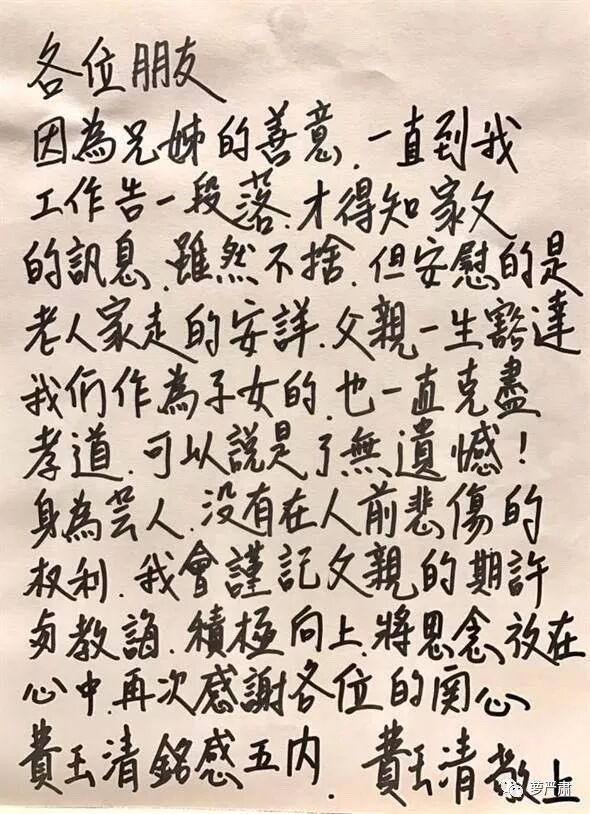 各位朋友
因為兄姊的善意、一直到我
工作告一段落、才得知家父
的訊息、雖然不捨、但安慰的是
老人家走的安詳、父親一生豁達
我们作為子女的、也一直克盡
孝道、可以說是了無遺憾！
身為芸人、沒有在人前悲傷的
权利、我會謹記父親的期許
與教誨、積極向上、將思念放在
心中、再次感謝各位的関心
費玉清銘感五內、費玉清敬上
萝严肃